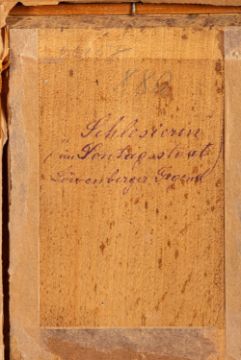 882
Schlesierin
(im Sontagsstaate)
Löwenberger Gegend